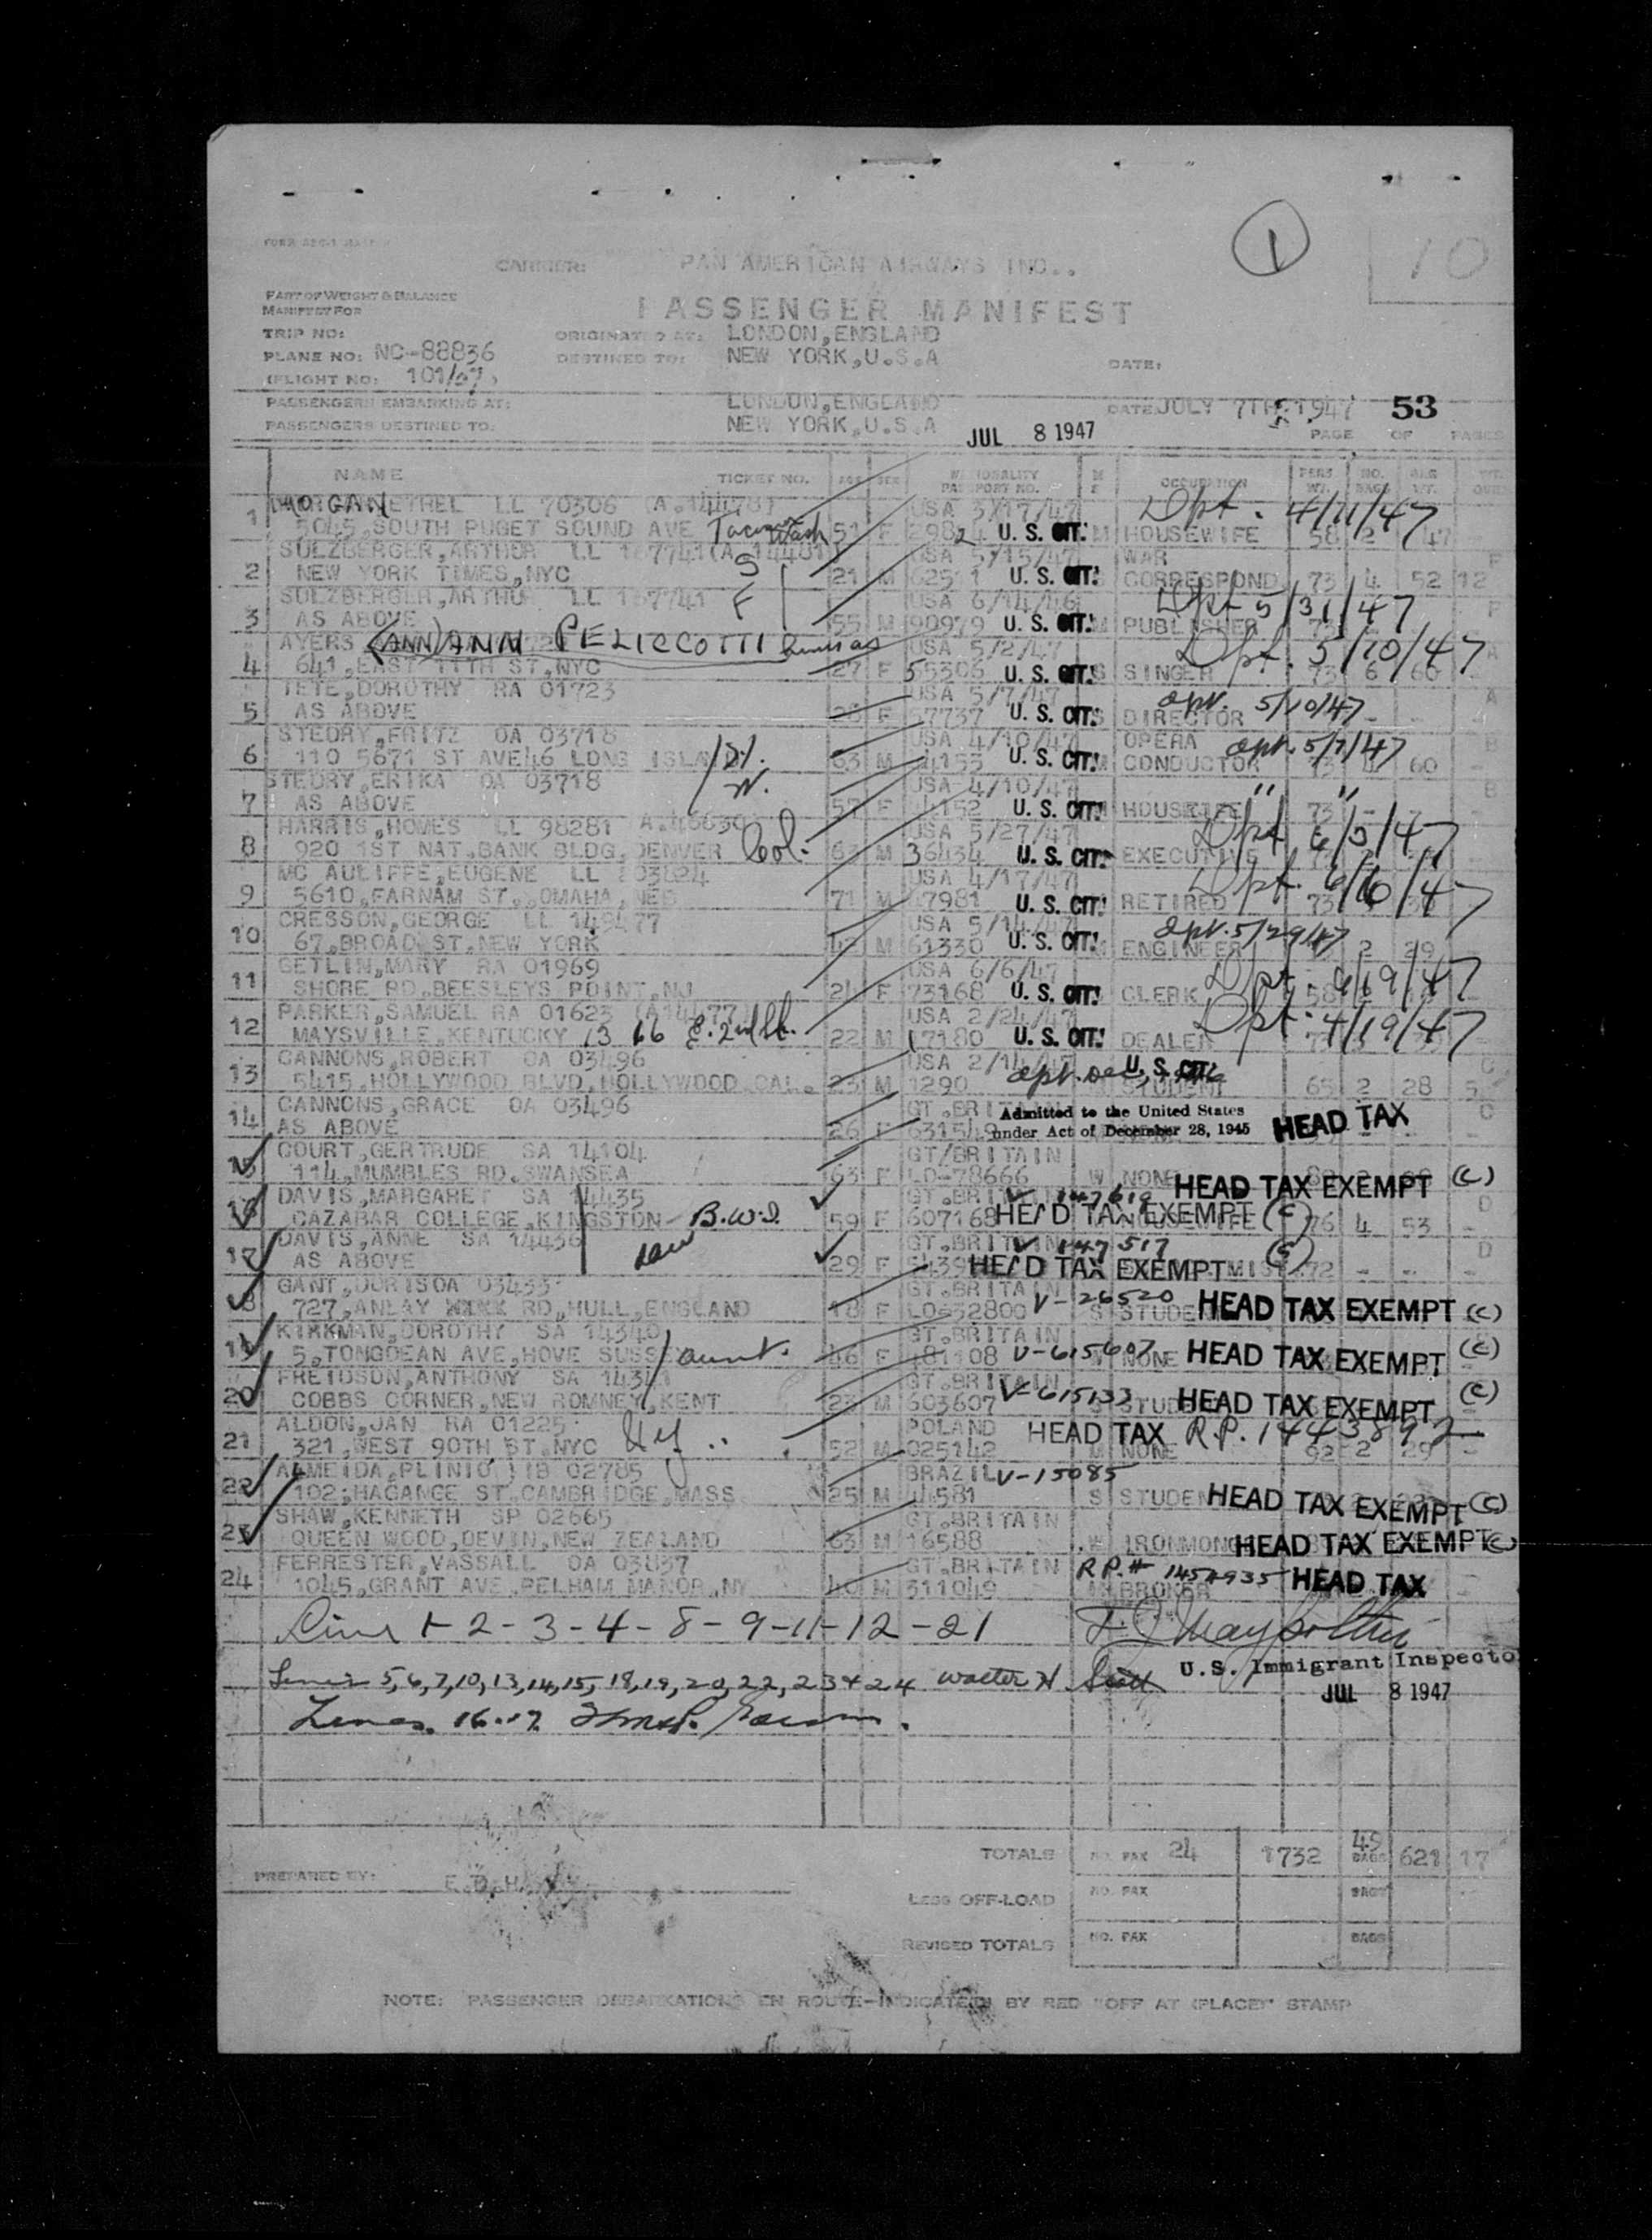 1
10
CARRIER: PAN AMERICAN AIRWAYS INC..
PART OF WEIGHT & BALANCE
MANIFEST FOR
PASSENGER MANIFEST
TRIP NO: ORIGINATED AT: LONDON,ENGLAND
PLANE NO: NC-88836 DESTINED TO: NEW YORK,U.S.A DATE:
(FLIGHT NO: 101/07)
PASSENGERS EMBARKING AT: LONDON,ENGLAND DATE JULY 7TH 1947 53
PASSENGERS DESTINED TO: NEW YORK,U.S.A JUL 8 1947 PAGE OF PAGES
NAME TICKET NO. AGE SEX NATIONALITY PASSPORT NO. OCCUPATION PERS WT. NO. BAGS BAG WT.
MORGAN ETHEL LL 70306 USA 3/17/47 Dpt. 4/11/47
1 5045,SOUTH PUGET SOUND AVE Tacoma Wash 51 F U.S. CIT. M HOUSEWIFE 58 2 47
SULZBERGER,ARTHUR LL 167741 (A 14481) S USA 5/15/47 WAR
2 NEW YORK TIMES,NYC 21 M U.S. CIT. S CORRESPOND 73 4 52 12
SULZBERGER,ARTHUR LL 167741 F USA 6/14/46 Dpt 5/31/47
3 AS ABOVE 55 M 90979 U.S. CIT. M PUBLISHER 73
AYERS (ANN) ANN PELICCOTTI USA 5/2/47 Dpt. 5/10/47
4 641,EAST 11TH ST,NYC 27 F 55306 U.S. CIT. S SINGER 73 6 60
TETE,DOROTHY RA 01723 USA 5/7/47 dpt. 5/10/47
5 AS ABOVE 28 F 57737 U.S. CIT. S DIRECTOR
STEDRY,FRITZ OA 03718 USA 4/10/47 OPERA dpt. 5/7/47
6 110 5671 ST AVE46 LONG ISLAND H. 63 M 44153 U.S. CIT. M CONDUCTOR 73 4 60
STEDRY,ERIKA OA 03718 W. USA 4/10/47 " "
7 AS ABOVE 57 F 44152 U.S. CIT. HOUSEWIFE 73 -
HARRIS,HOMES LL 98281 A.46630 USA 5/27/47 Dpt 6/3/47
8 920 1ST NAT.BANK BLDG,DENVER Col. 63 M 36434 U.S. CIT. EXECUTIVE
MC AULIFFE,EUGENE LL USA 4/17/47 Dpt. 6/6/47
9 5610,FARNAM ST.,OMAHA,NEB 71 M 17981 U.S. CIT. RETIRED 73
CRESSON,GEORGE LL 149477 USA 5/14/47 dpt. 5/29/47
10 67,BROAD ST.NEW YORK 42 M 61330 U.S. CIT. M ENGINEER 2 29
GETLIN,MARY RA 01969 USA 6/6/47 Dpt. 6/19/47
11 SHORE RD.BEESLEYS POINT,NJ 21 F 73168 U.S. CIT. CLERK 58
PARKER,SAMUEL RA 01623 (A14477) USA 2/24/47 Dpt. 4/19/47
12 MAYSVILLE,KENTUCKY 1366 E. 2nd St. 22 M 17180 U.S. CIT. DEALER
CANNONS,ROBERT OA 03496 USA 2/14/47 U.S. CIT. C
13 5415,HOLLYWOOD BLVD,HOLLYWOOD CAL. 23 M 1290 STUDENT 65 2 28 5
CANNONS,GRACE OA 03496 GT.BRITAIN Admitted to the United States HEAD TAX C
14 AS ABOVE 26 F 631549 under Act of December 28, 1945
COURT,GERTRUDE SA 14104 GT/BRITAIN
15 114,MUMBLES RD.SWANSEA 63 F LO-78666 W NONE HEAD TAX EXEMPT (C)
DAVIS,MARGARET SA 14435 GT.BRITAIN V-147619 D
16 CAZABAR COLLEGE,KINGSTON B.W.I. 59 F 607168 HEAD TAX EXEMPT (C) 76 4 53
DAVIS,ANNE SA 14436 GT.BRITAIN V-147517 D
17 AS ABOVE 29 F HEAD TAX EXEMPT (C) 72 - - -
GANT,DORIS OA 03433 GT.BRITAIN V-26520
18 727,ANLAY RD,HULL,ENGLAND 18 F LO632800 S STUDENT HEAD TAX EXEMPT (C)
KIRKMAN,DOROTHY SA 14340 GT.BRITAIN
19 5,TONGDEAN AVE,HOVE SUSS aunt. 46 F 481108 V-615607 NONE HEAD TAX EXEMPT (C)
FREIDSON,ANTHONY SA 14341 GT.BRITAIN V-615133
20 COBBS CORNER,NEW ROMNEY,KENT 23 M 603607 S STUD HEAD TAX EXEMPT (C)
ALDON,JAN RA 01225 POLAND HEAD TAX R.P. 1443892
21 321,WEST 90TH ST.NYC 52 M 025142 M NONE 92 2 29 -
ALMEIDA,PLINIO IB 02785 BRAZIL V-15085
22 102,HAGANCE ST.CAMBRIDGE,MASS 25 M 44581 S STUDEN HEAD TAX EXEMPT (C)
SHAW,KENNETH SP 02665 GT.BRITAIN
23 QUEEN WOOD,DEVIN,NEW ZEALAND 63 M 16588 W IRONMONG HEAD TAX EXEMPT (C)
FERRESTER,VASSALL OA 03837 GT.BRITAIN R.P.# 1454935 HEAD TAX
24 1045,GRANT AVE.PELHAM MANOR,NY 40 M 311049 M BROKER
Line 1-2-3-4-8-9-11-12-21
Lines 5,6,7,10,13,14,15,18,19,20,22,23+24 Walter H. Scott U.S. Immigrant Inspector
JUL 8 1947
Lines 16-17
TOTALS NO. PAX 24 1732 49 BAGS 621 17
PREPARED BY: E.D.H.
LESS OFF-LOAD NO. PAX BAGS
REVISED TOTALS NO. PAX BAGS
NOTE: PASSENGER DEBARKATIONS EN ROUTE-INDICATED BY RED "OFF AT (PLACE)" STAMP